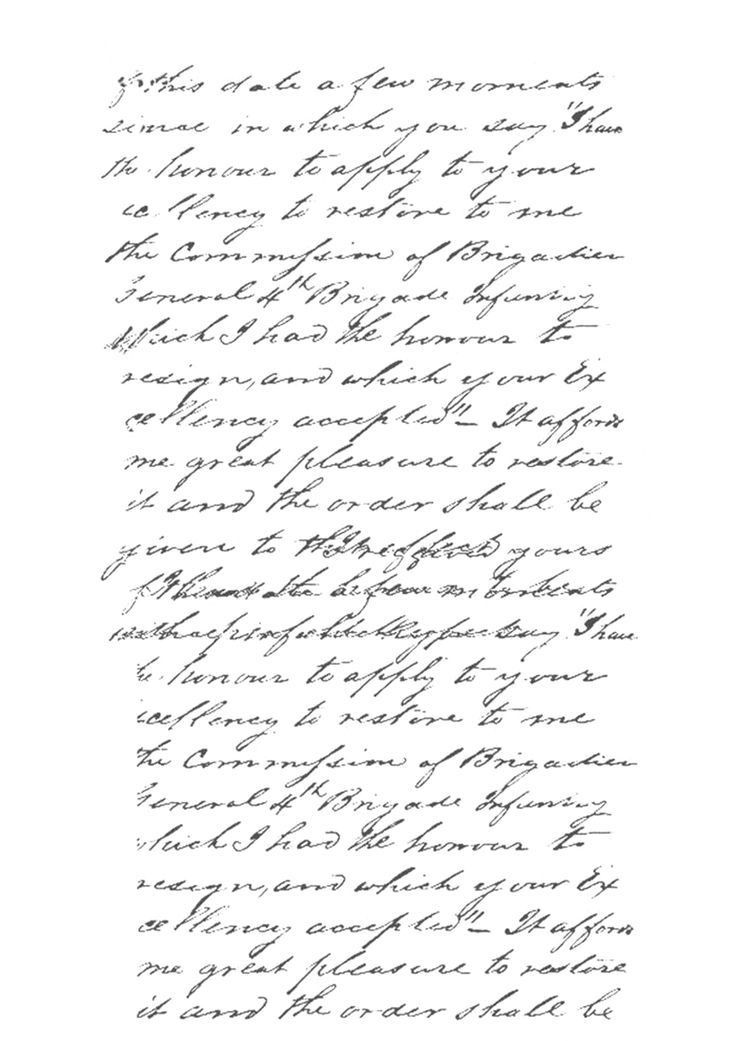 of this date a few moments
since in which you say "I have
the honour to apply to your
ccllency to restore to me
the Commission of Brigadier
General 4th Brigade Infantry
Which I had the honour to
resign, and which your Ex
cellency accepted" – It affords
me great pleasure to restore
it and the order shall be
given to yours
moments
say "I have
the honour to apply to your
xcellency to restore to me
the Commission of Brigadier
General 4th Brigade Infantry
which I had the honour to
resign, and which your Ex
cellency accepted" – It affords
me great pleasure to restore
it and the order shall be